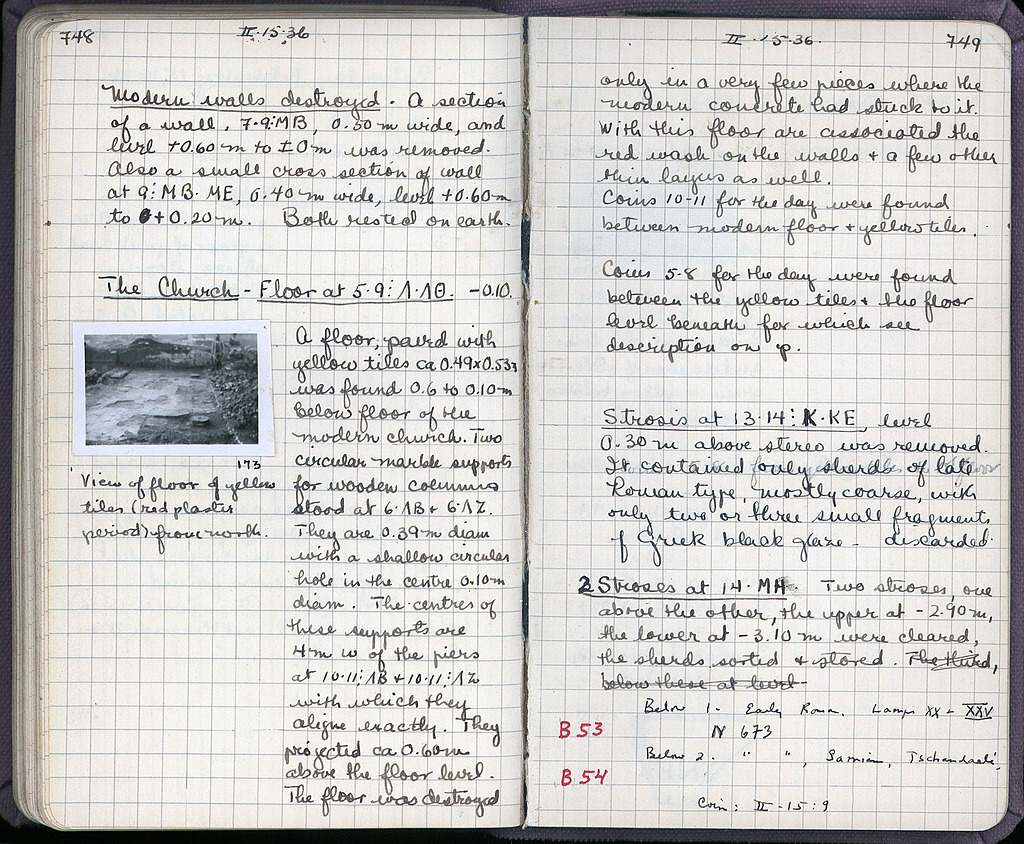 748
II·15·36
Modern walls destroyed. A section
of a wall, 7·9:MB, 0.50 m wide, and
level +0.60 m to ±0 m was removed.
Also a small cross section of wall
at 9: MB·ME, 0.40 m wide, level +0.60 m
to +0.20 m. Both rested on earth.
The Church - Floor at 5·9: Λ·ΛΘ. -0.10.
A floor, paved with
yellow tiles ca 0.49x0.533
was found 0.6 to 0.10 m
below floor of the
modern church. Two
circular marble supports
for wooden columns
stood at 6·ΛB + 6·ΛZ.
They are 0.39 m diam
with a shallow circular
hole in the centre 0.10 m
diam. The centres of
these supports are
4 m w of the piers
at 10·11:ΛB + 10·11:ΛZ
with which they
aligne exactly. They
projected ca 0.60 m
above the floor level.
The floor was destroyed
173
View of floor of yellow
tiles (red plaster
period) from north.
II·15·36.
749
only in a very few pieces where the
modern concrete had stuck to it.
With this floor are associated the
red wash on the walls + a few other
thin layers as well.
Coins 10-11 for the day were found
between modern floor + yellow tiles.
Coins 5-8 for the day were found
between the yellow tiles + the floor
level beneath for which see
description on p.
Strosis at 13·14: K·KE, level
0.30 m above stereo was removed.
It contained only sherds of late
Roman type, mostly coarse, with
only two or three small fragments
of Greek black glaze - discarded.
2 Stroses at 14·MH. Two stroses, one
above the other, the upper at -2.90 m,
the lower at -3.10 m were cleared,
the sherds sorted + stored. The third,
below these at level -
Below 1. Early Roman. Lamps XX - XXV
B 53
N 673
Below 2. " " , Samian,
B 54
Coin: II-15:9